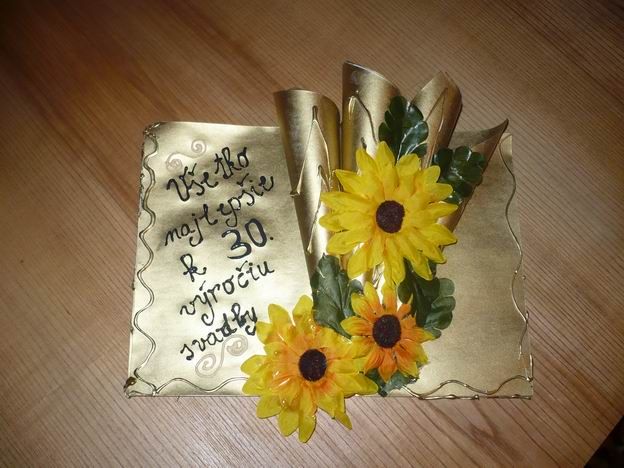 Všetko
najlepšie
k 30.
výročiu
svadby